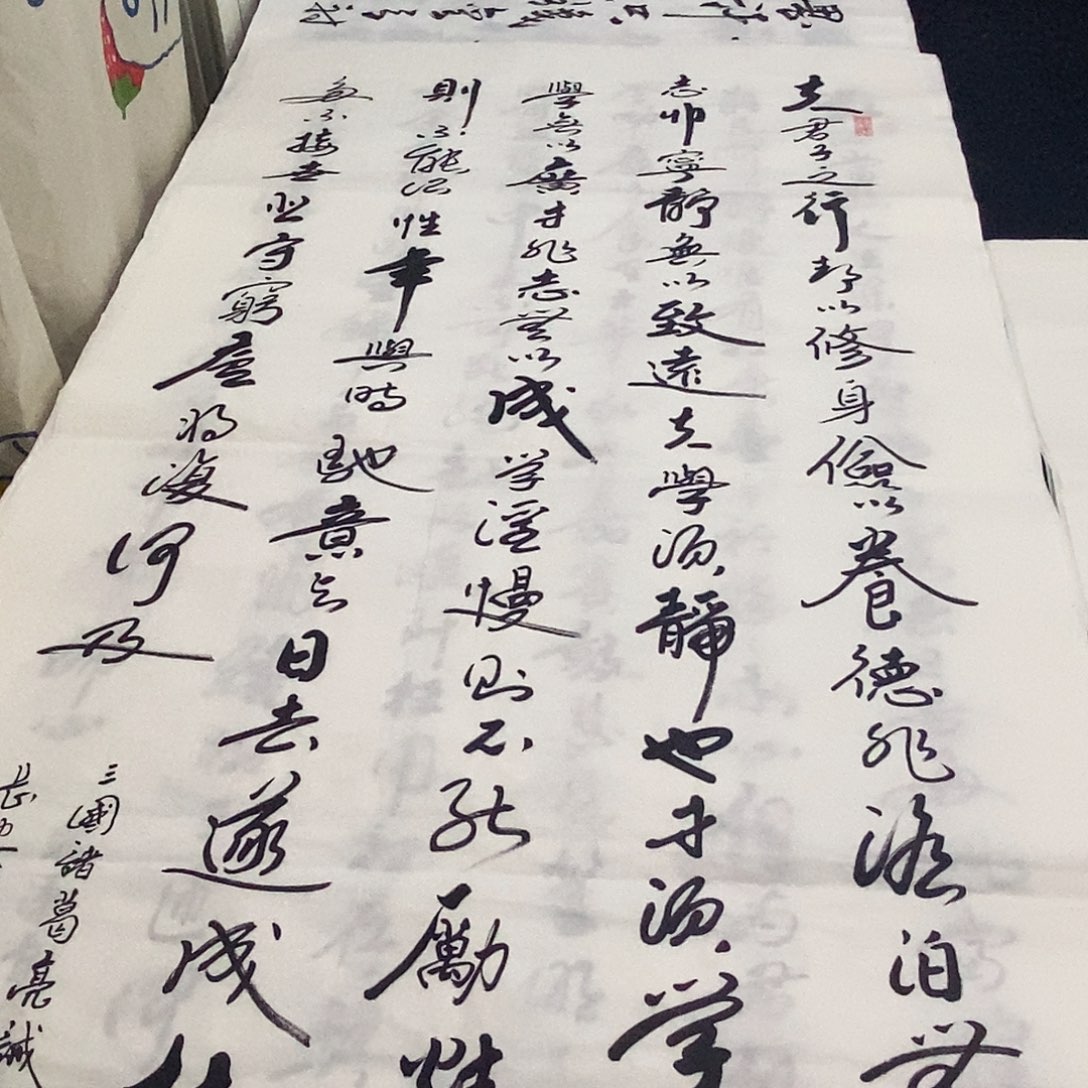 夫君子之行靜以修身儉以養德非澹泊無
志非寧靜無以致遠夫學須靜也才須学
學無以廣才非志無以成学淫慢則不能勵
則不能治性年與時馳意与日去遂成
多不接世悲守窮廬將復何及
三國諸葛亮誡